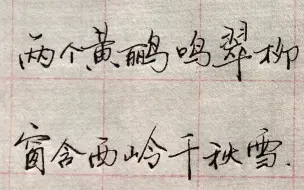 两个黄鹂鸣翠柳
窗含西岭千秋雪.